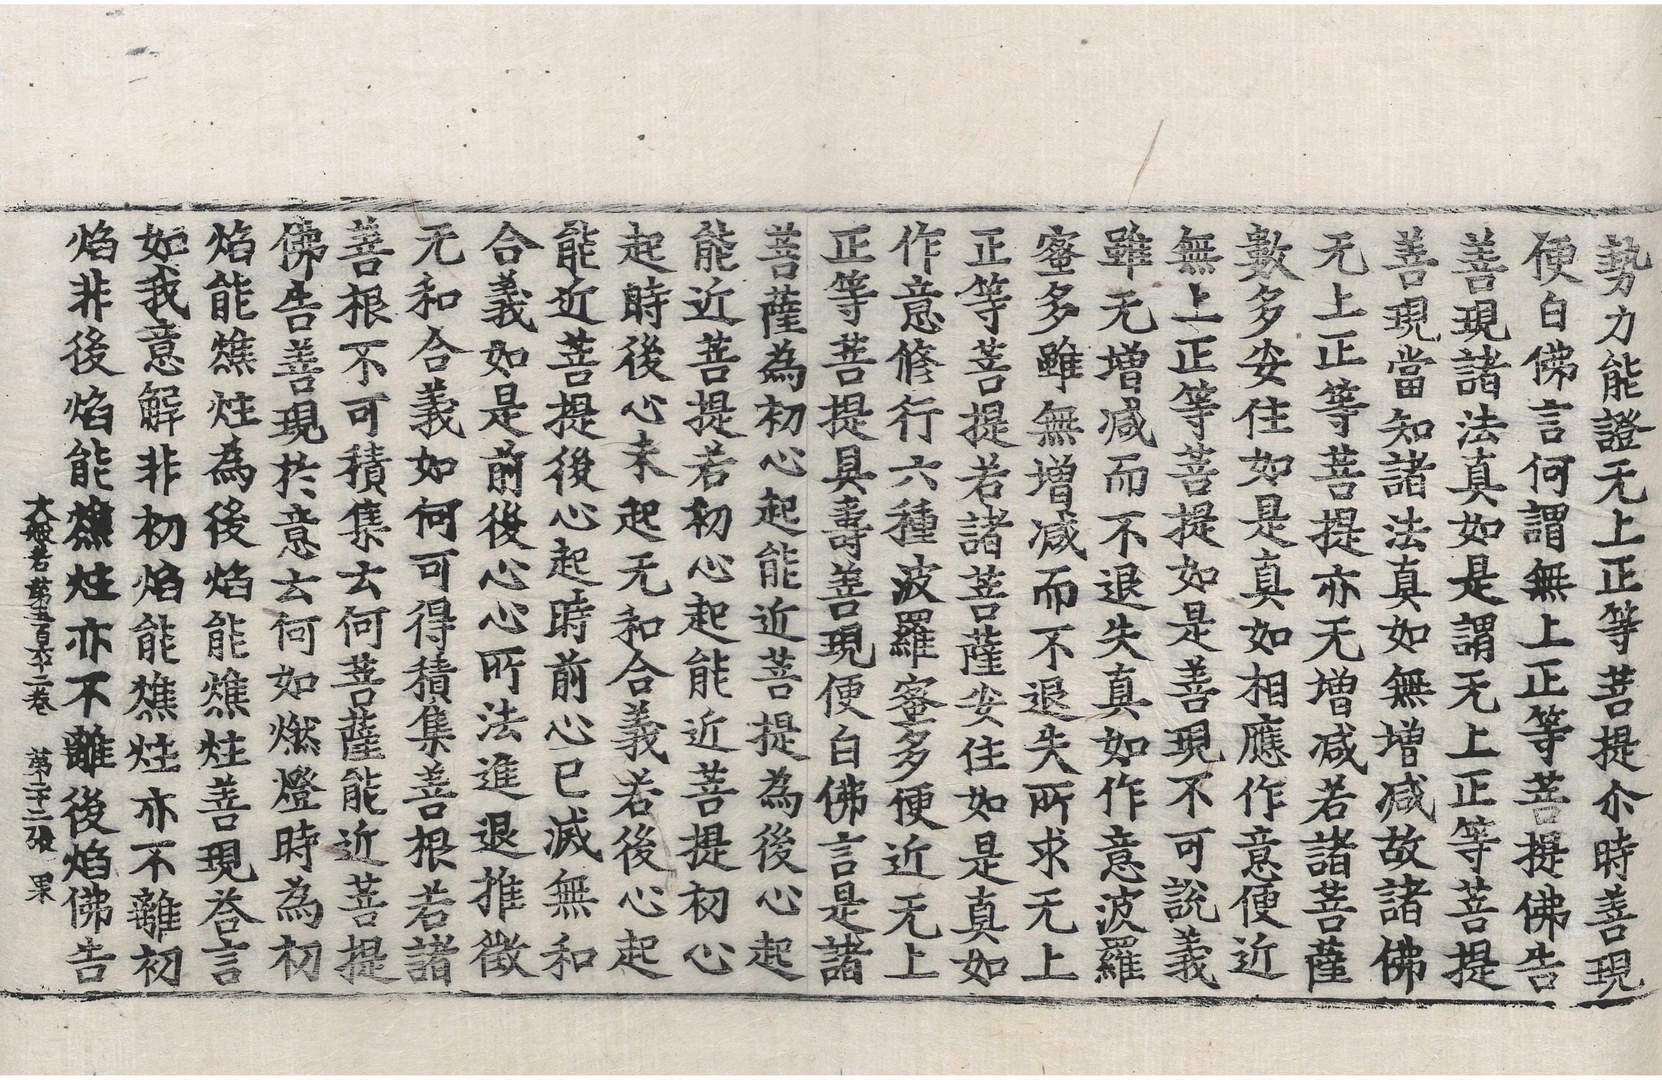 勢力能證无上正等菩提尒時善現
便白佛言何謂無上正等菩提佛告
善現諸法真如是謂无上正等菩提
善現當知諸法真如無增減故諸佛
无上正等菩提亦无增減若諸菩薩
數多安住如是真如相應作意便近
無上正等菩提如是善現不可說義
雖无增減而不退失真如作意波羅
蜜多雖無增減而不退失所求无上
正等菩提若諸菩薩安住如是真如
作意修行六種波羅蜜多便近无上
正等菩提具壽善現便白佛言是諸
菩薩為初心起能近菩提為後心起
能近菩提若初心起能近菩提初心
起時後心未起无和合義若後心起
能近菩提後心起時前心已滅無和
合義如是前後心心所法進退推徵
无和合義如何可得積集善根若諸
善根不可積集云何菩薩能近菩提
佛告善現於意云何如燃燈時為初
焰能燋炷為後焰能燋炷善現荅言
如我意解非初焰能燋炷亦不離初
焰非後焰能燋炷亦不離後焰佛告
大般若第五百六十二卷 第二十二張 果